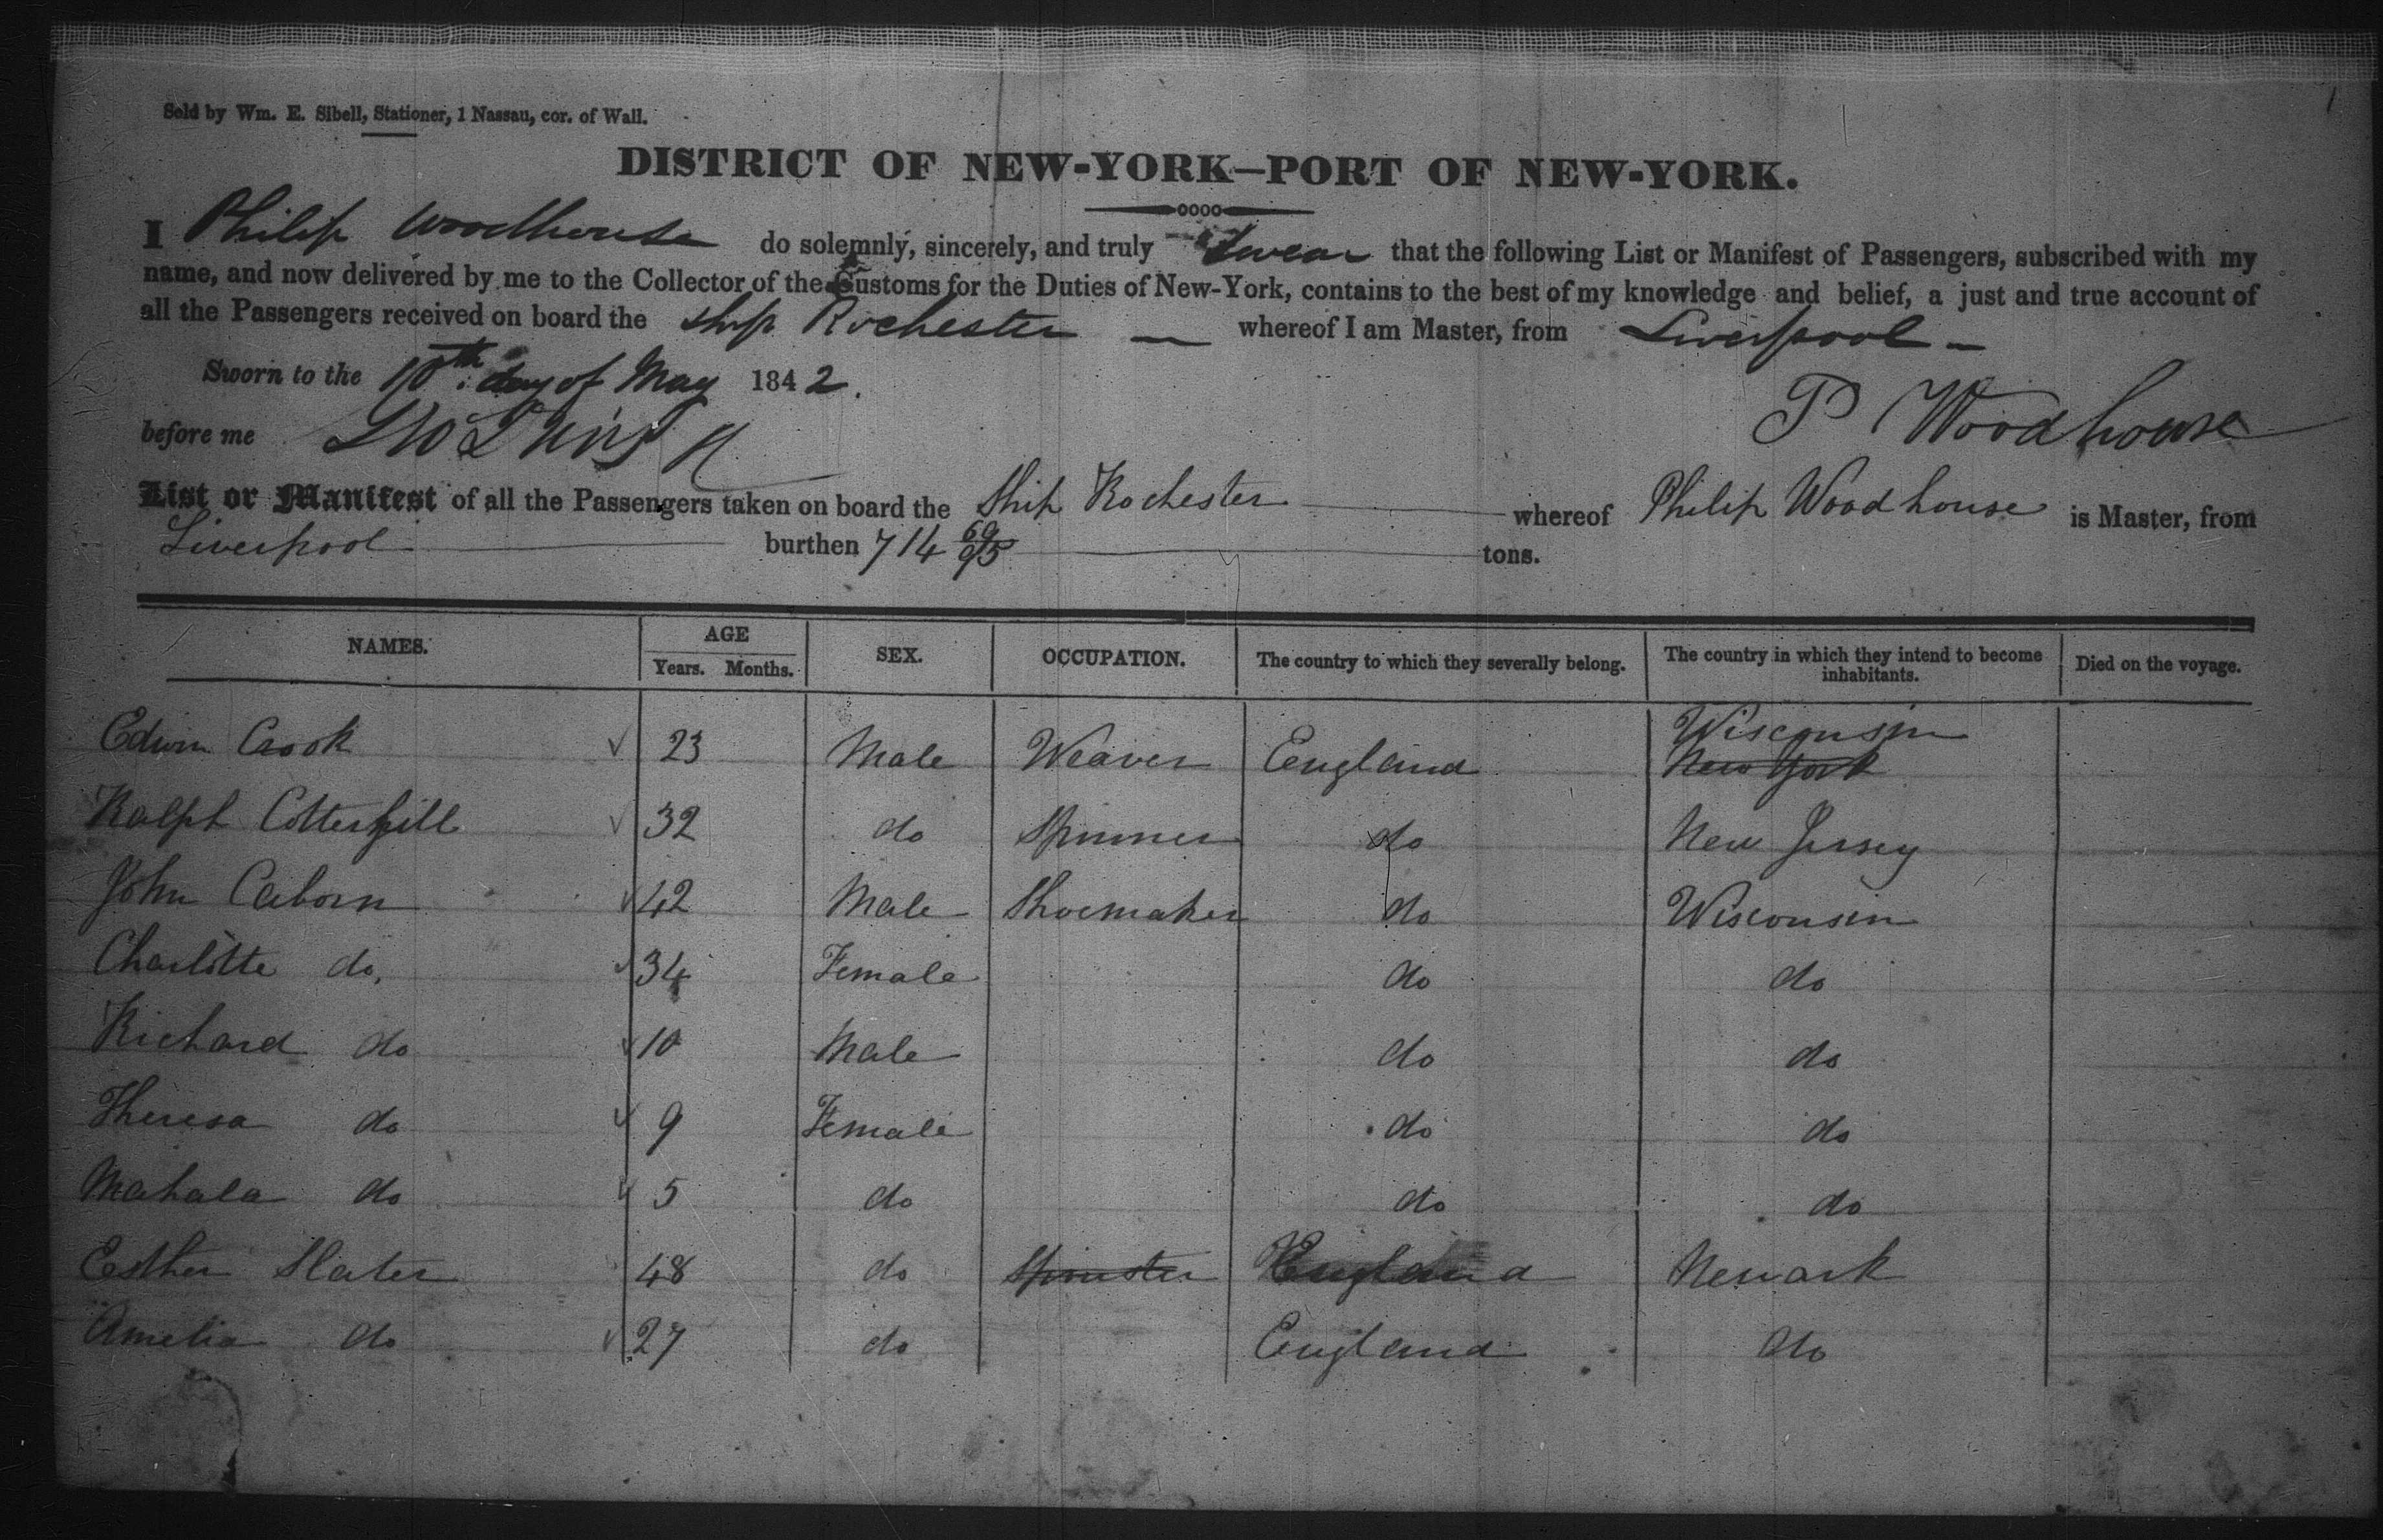 Sold by Wm. E. Sibell, Stationer, 1 Nassau, cor. of Wall.
1
DISTRICT OF NEW-YORK—PORT OF NEW-YORK.
I Philip Woodhouse do solemnly, sincerely, and truly swear that the following List or Manifest of Passengers, subscribed with my
name, and now delivered by me to the Collector of the Customs for the Duties of New-York, contains to the best of my knowledge and belief, a just and true account of
all the Passengers received on board the Ship Rochester — whereof I am Master, from Liverpool —
Sworn to the 10th day of May 1842.
P Woodhouse
before me
List or Manifest of all the Passengers taken on board the Ship Rochester whereof Philip Woodhouse is Master, from
Liverpool burthen 714 69/95 tons.
NAMES. AGE Years. Months. SEX. OCCUPATION. The country to which they severally belong. The country in which they intend to become inhabitants. Died on the voyage.
Edwin Crook 23 Male Weaver England Wisconsin New York
Ralph Cotterhill 32 do Spinner do New Jersey
John Caborn 42 Male Shoemaker do Wisconsin
Charlotte do. 34 Female do do
Richard do 10 Male do do
Theresa do 9 Female do do
Mahala do 5 do do do
Esther Slater 48 do Spinster England Newark
Amelia do 27 do England do